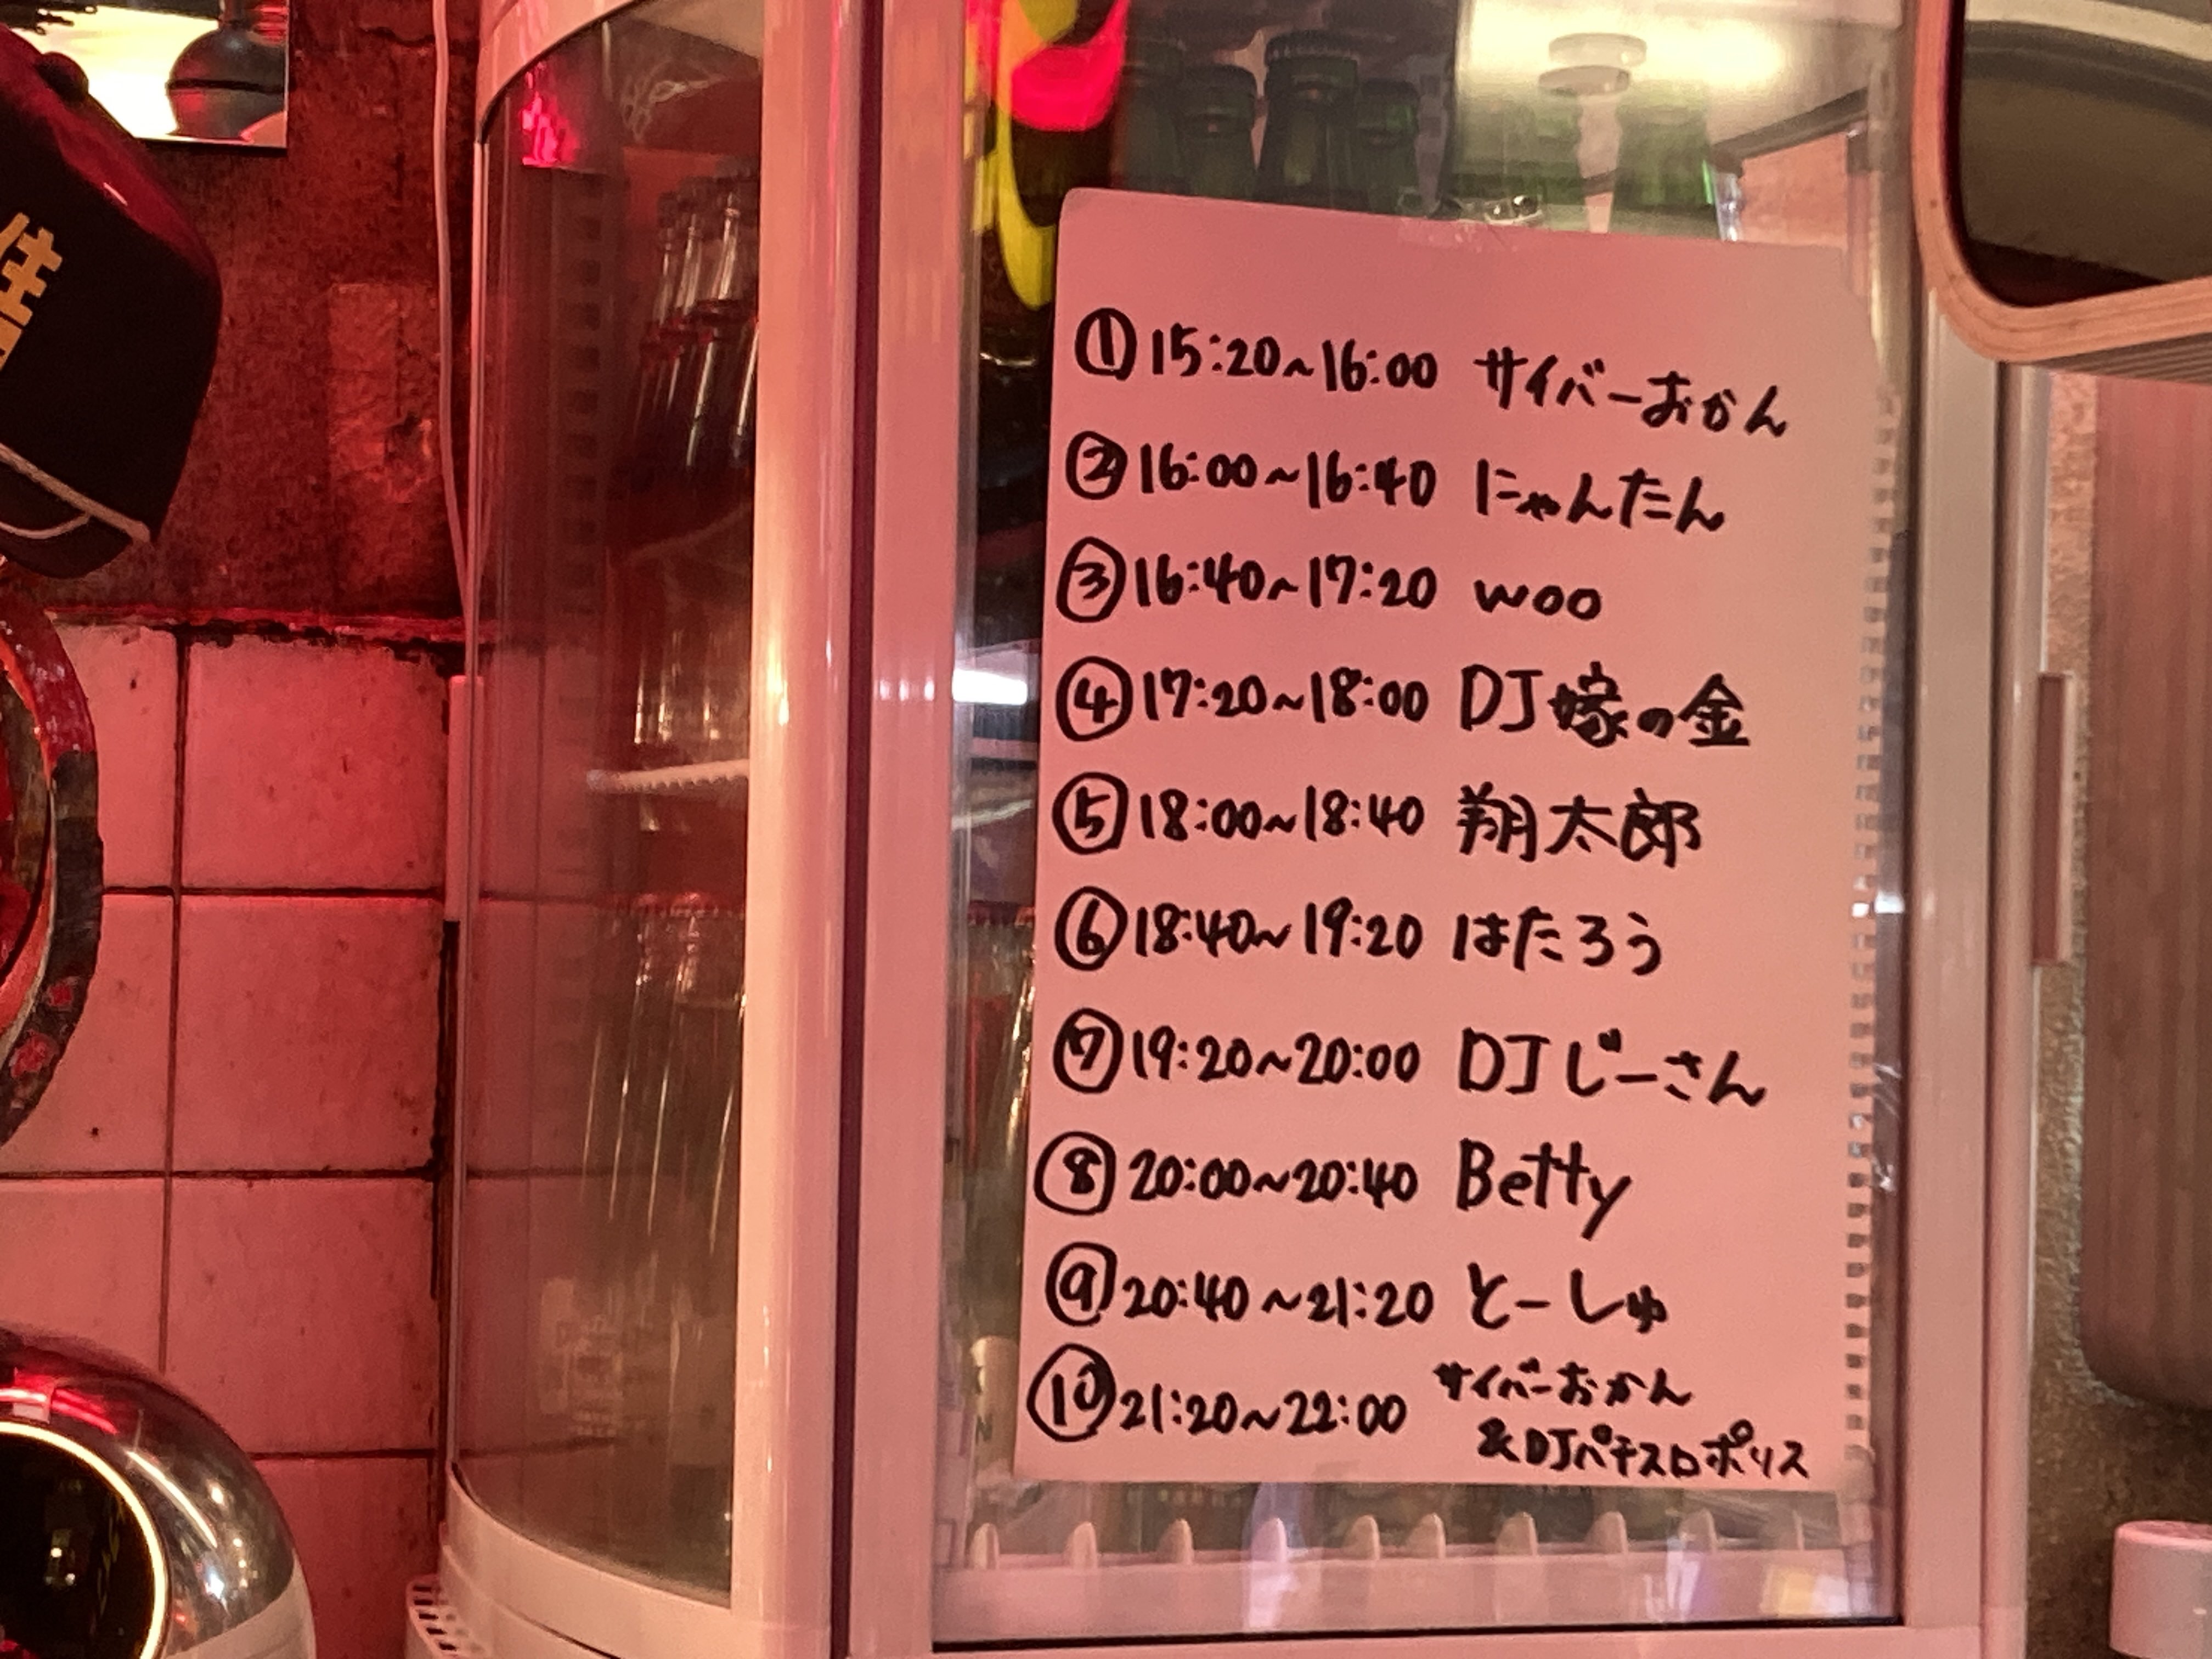 ①15:20~16:00 サイバーおかん
②16:00~16:40 にゃんたん
③16:40~17:20 woo
④17:20~18:00 DJ嫁の金
⑤18:00~18:40 翔太郎
⑥18:40~19:20 はたろう
⑦19:20~20:00 DJじーさん
⑧20:00~20:40 Betty
⑨20:40~21:20 とーしゅ
⑩21:20~22:00 サイバーおかん
&DJパチスロポリス